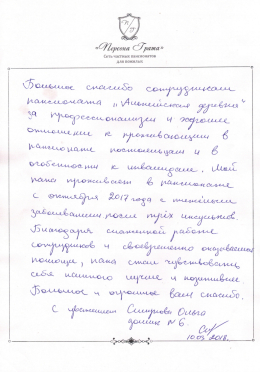 «Персона Грата»
Сеть частных пансионатов
для пожилых
Большое спасибо сотрудникам
пансионата "Английская деревня"
за профессионализм и хорошее
отношение к проживающим в
пансионате постояльцам и в
особенности к инвалидам. Мой
папа проживает в пансионате
с октября 2017 года с тяжёлым
заболеванием после трёх инсультов.
Благодаря слаженной работе
сотрудников и своевременно оказанной
помощи, папа стал чувствовать
себя намного лучше и позитивнее.
Большое и огромное вам спасибо.
С уважением Смирнова Ольга
домик № 6.
10.05.2018.